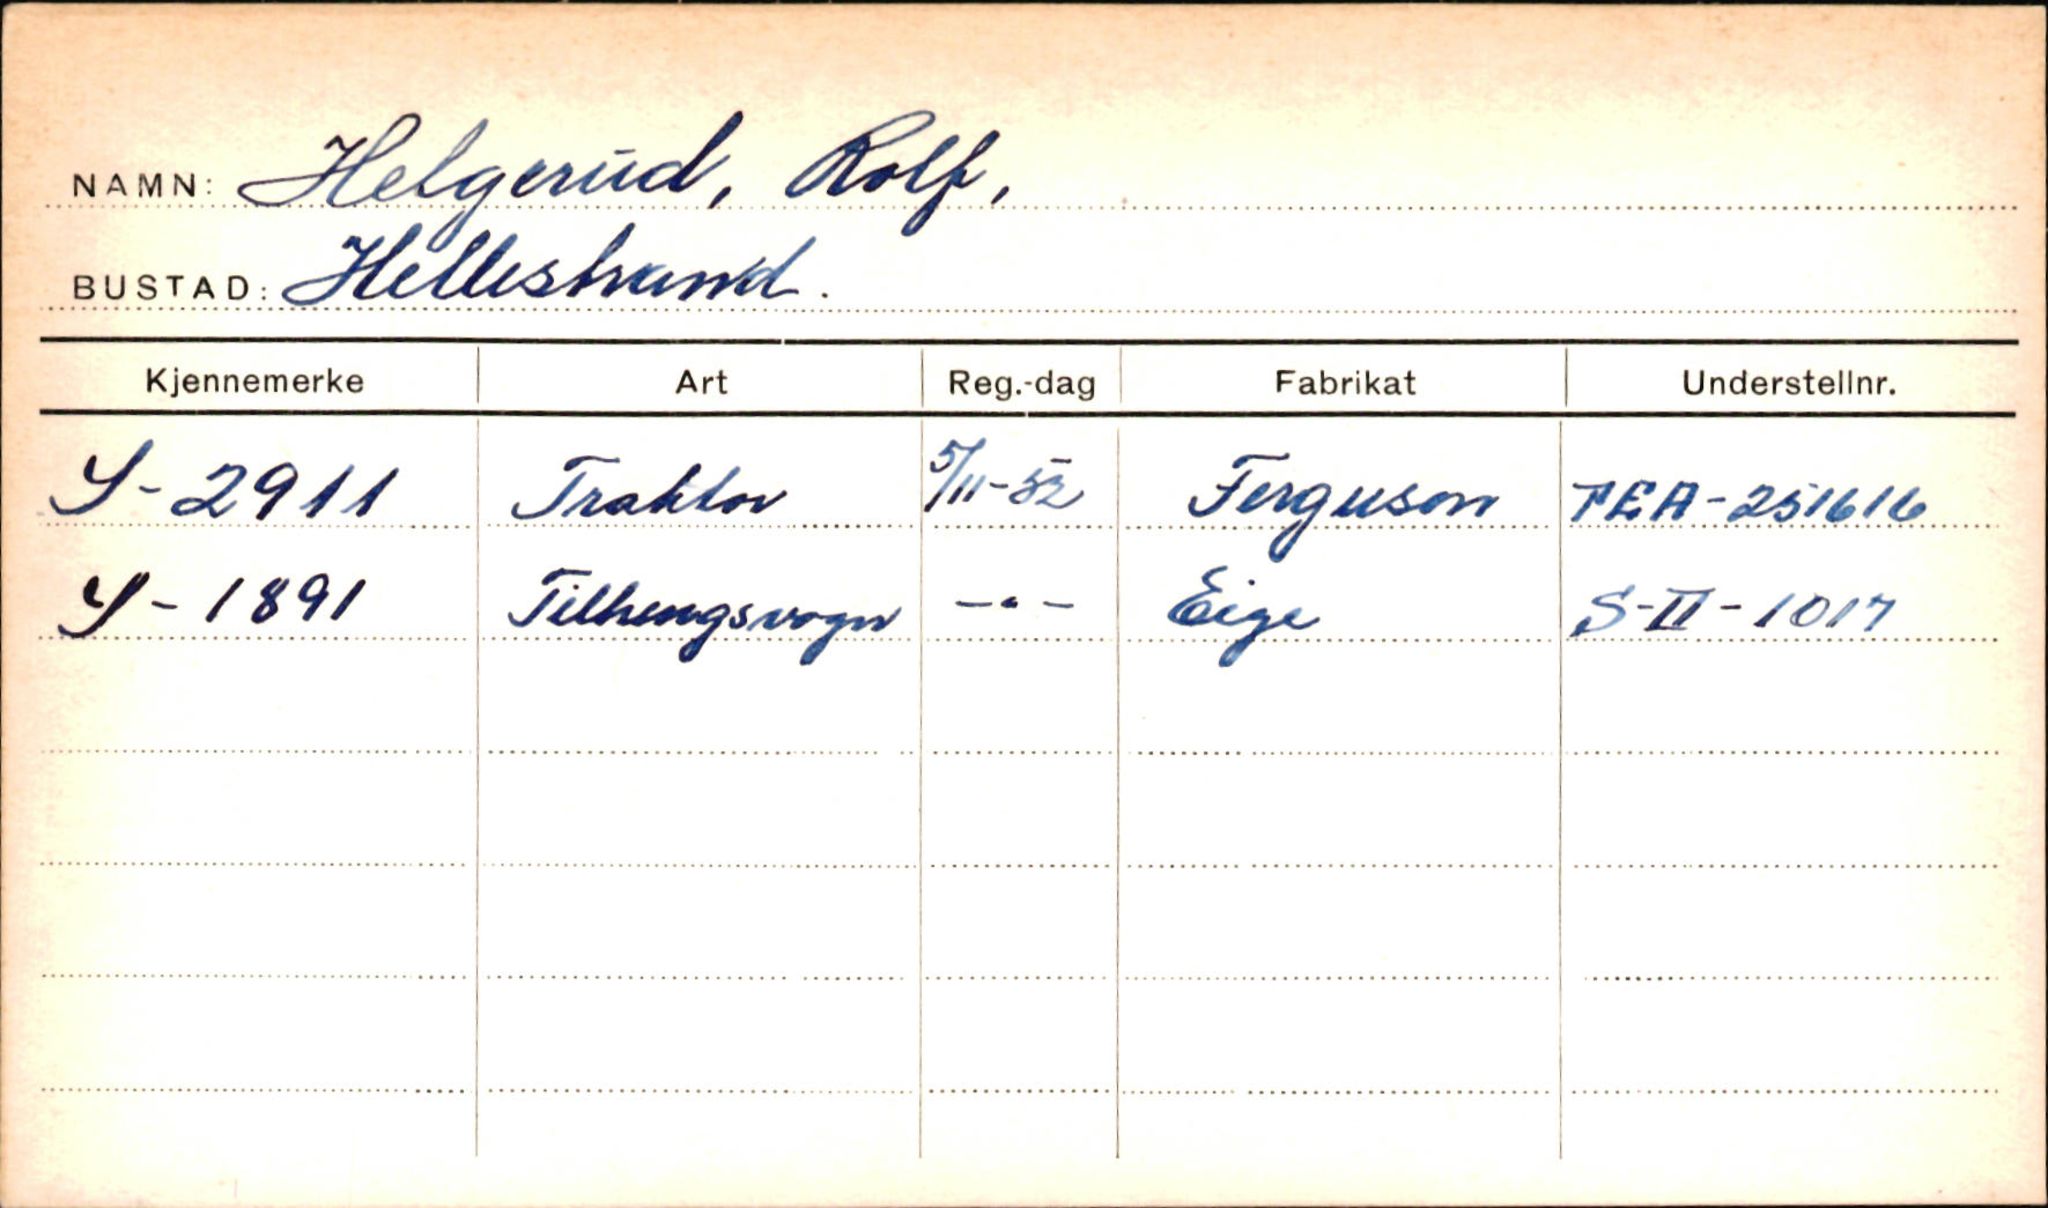 NAMN: Helgerud, Rolf,
BUSTAD: Hellestrand.
Kjennemerke Art Reg.-dag Fabrikat Understellnr.
S-2911 Traktor 5/11-52 Ferguson TEA-251616
S-1891 Tilhengsvogn -"- Eige S-II-1017